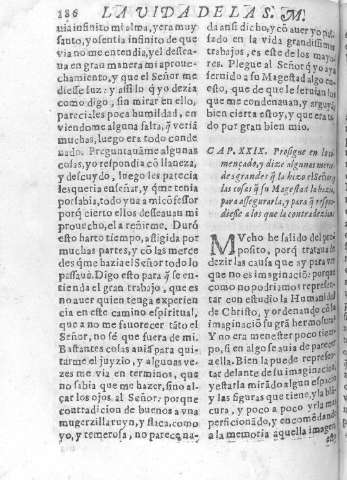 186 LA VIDA DE LA S. M.
uia infinito mi alma, y era muy
santo, y o sentia infinito de que
via no me entendia, y el dessea-
ua en gran manera mi aproue-
chamiento, y que el Señor me
diesse luz: y assi lo q̃ yo dezia
como digo, sin mirar en ello,
pareciales poca humildad, en
viendome alguna falta, q̃ veriã
muchas, luego era todo conde
nado. Preguntauãme algunas
cosas, yo respondia cõ llaneza,
y descuydo, luego les parecia
les queria enseñar, y q̃ me tenia
por sabia, todo yua a mi cõfessor
porq̃ cierto ellos desseauan mi
prouecho, el a reñirme. Durò
esto harto tiempo, afligida por
muchas partes, y cõ las merce
des q̃ me hazia el Señor todo lo
passaua. Digo esto para q̃ se en-
tienda el gran trabajo, que es
no auer quien tenga experien
cia en este camino espiritual,
que a no me fauorecer tãto el
Señor, no sè que fuera de mi.
Bastantes cosas auia para qui-
tarme el juyzio, y algunas ve-
zes me via en terminos, que
no sabia que me hazer, sino al-
çar los ojos al Señor: porque
contradicion de buenos a vna
mugerzilla ruyn, y flaca, como
yo, y temerosa, no parece na-
da ansi dicho, y cõ auer yo pas-
sado en la vida grandissimos
trabajos, es este de los mayo-
res. Plegue al Señor q̃ yo aya
seruido a su Magestad algo en
esto, que de que le seruian los
que me condenauan, y argüyã
bien cierta estoy, y que era to
do por gran bien mio.
CAP. XXIX. Prosigue en lo co-
mençado, y dize algunas merce-
des grandes q̃ la hizo el Señor, y
las cosas q̃ su Magestad la hazia,
para assegurarla, y para q̃ respon-
diesse a los que la contradezian.
MVcho he salido del pro-
posito, porq̃ trataua de
dezir las causas que ay para ver
que no es imaginaciõ: porque
como no podriamos represen-
tar con estudio la Humanidad
de Christo, y ordenando cõ la
imaginaciõ su grã hermosura?
Y no era menester poco tiem-
po, si en algo se auia de parecer
a ella. Bien la puede represen-
tar delante de su imaginacion,
y estarla mirãdo algun espacio
y las figuras que tiene, y la blã-
cura, y poco a poco yrla mas
perficionãdo, y encomẽdando
a la memoria aquella imagen